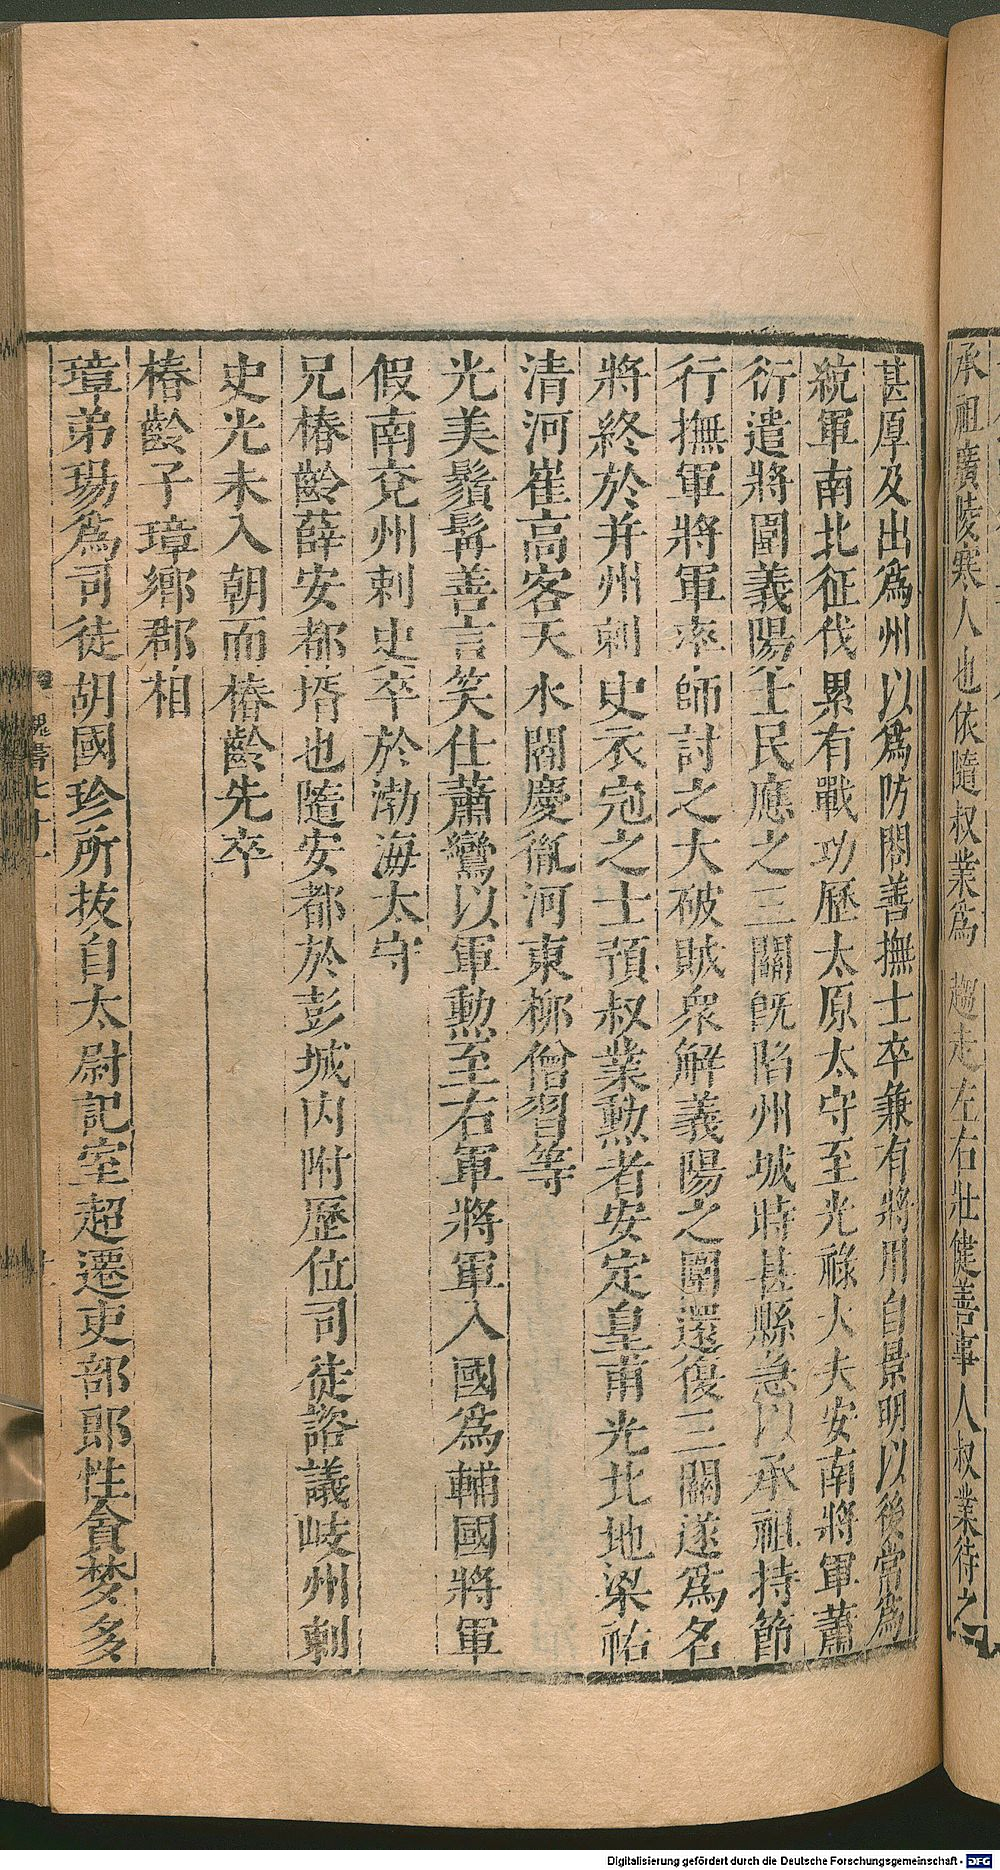 承祖廣陵寒人也依隨叔業爲趨走左右壯健善事人叔業待之
甚厚及出爲州以爲防閤善撫士卒兼有將用自景明以後常爲
統軍南北征伐累有戰功歷太原太守至光祿大夫安南將軍蕭
衍遣將圍義陽士民應之三關旣陷州城時甚縣急以承祖持節
行撫軍將軍率師討之大破賊衆解義陽之圍還復三關遂爲名
將終於并州刺史衣冠之士預叔業勲者安定皇甫光北地梁祐
清河崔高客天水閻慶胤河東柳僧習等
光美鬚髯善言笑仕蕭鸞以軍勲至右軍將軍入國爲輔國將軍
假南兗州刺史卒於渤海太守
兄椿齡薛安都壻也隨安都於彭城内附歷位司徒諮議岐州刺
史光未入朝而椿齡先卒
椿齡子璋鄉郡相
璋弟瑒爲司徒胡國珍所拔自太尉記室超遷吏部郎性貪婪多
魏書七十一
Digitalisierung gefördert durch die Deutsche Forschungsgemeinschaft - DFG